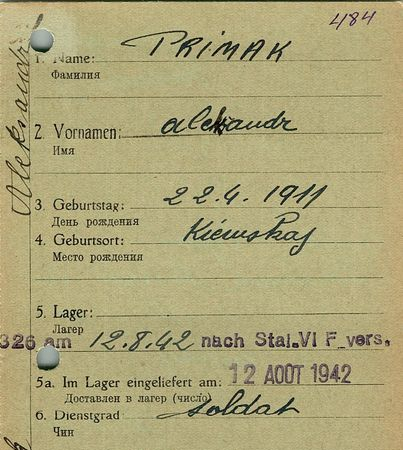 484
1. Name: PRIMAK
Фамилия
Aleksandr
2. Vornamen: Aleksandr
Имя
3. Geburtstag: 22.4.1911
День рождения
4. Geburtsort: Kiewskaj
Место рождения
5. Lager:
Лагерь
326 am 12.8.42 nach Stal. VI F vers.
5a. Im Lager eingeliefert am: 12 AOÛT 1942
Доставлен в лагер (число)
6. Dienstgrad: Soldat
Чин